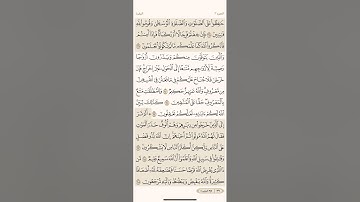 حَٰفِظُوا۟ عَلَى ٱلصَّلَوَٰتِ وَٱلصَّلَوٰةِ ٱلْوُسْطَىٰ وَقُومُوا۟ لِلَّهِ
قَٰنِتِينَ ٢٣٨ فَإِنْ خِفْتُمْ فَرِجَالًا أَوْ رُكْبَانًا فَإِذَآ أَمِنتُمْ
فَٱذْكُرُوا۟ ٱللَّهَ كَمَا عَلَّمَكُم مَّا لَمْ تَكُونُوا۟ تَعْلَمُونَ ٢٣٩
وَٱلَّذِينَ يُتَوَفَّوْنَ مِنكُمْ وَيَذَرُونَ أَزْوَٰجًا
وَصِيَّةً لِّأَزْوَٰجِهِم مَّتَٰعًا إِلَى ٱلْحَوْلِ غَيْرَ إِخْرَاجٍ فَإِنْ
خَرَجْنَ فَلَا جُنَاحَ عَلَيْكُمْ فِى مَا فَعَلْنَ فِىٓ أَنفُسِهِنَّ
مِن مَّعْرُوفٍ وَٱللَّهُ عَزِيزٌ حَكِيمٌ ٢٤٠ وَلِلْمُطَلَّقَٰتِ مَتَٰعٌۢ
بِٱلْمَعْرُوفِ حَقًّا عَلَى ٱلْمُتَّقِينَ ٢٤١ كَذَٰلِكَ يُبَيِّنُ
ٱللَّهُ لَكُمْ ءَايَٰتِهِۦ لَعَلَّكُمْ تَعْقِلُونَ ٢٤٢ أَلَمْ تَرَ
إِلَى ٱلَّذِينَ خَرَجُوا۟ مِن دِيَٰرِهِمْ وَهُمْ أُلُوفٌ حَذَرَ ٱلْمَوْتِ
فَقَالَ لَهُمُ ٱللَّهُ مُوتُوا۟ ثُمَّ أَحْيَٰهُمْ إِنَّ ٱللَّهَ لَذُو فَضْلٍ
عَلَى ٱلنَّاسِ وَلَٰكِنَّ أَكْثَرَ ٱلنَّاسِ لَا يَشْكُرُونَ ٢٤٣
وَقَٰتِلُوا۟ فِى سَبِيلِ ٱللَّهِ وَٱعْلَمُوٓا۟ أَنَّ ٱللَّهَ سَمِيعٌ عَلِيمٌ ٢٤٤
مَّن ذَا ٱلَّذِى يُقْرِضُ ٱللَّهَ قَرْضًا حَسَنًا فَيُضَٰعِفَهُۥ لَهُۥٓ أَضْعَافًا
كَثِيرَةً وَٱللَّهُ يَقْبِضُ وَيَبْصُۜطُ وَإِلَيْهِ تُرْجَعُونَ ٢٤٥